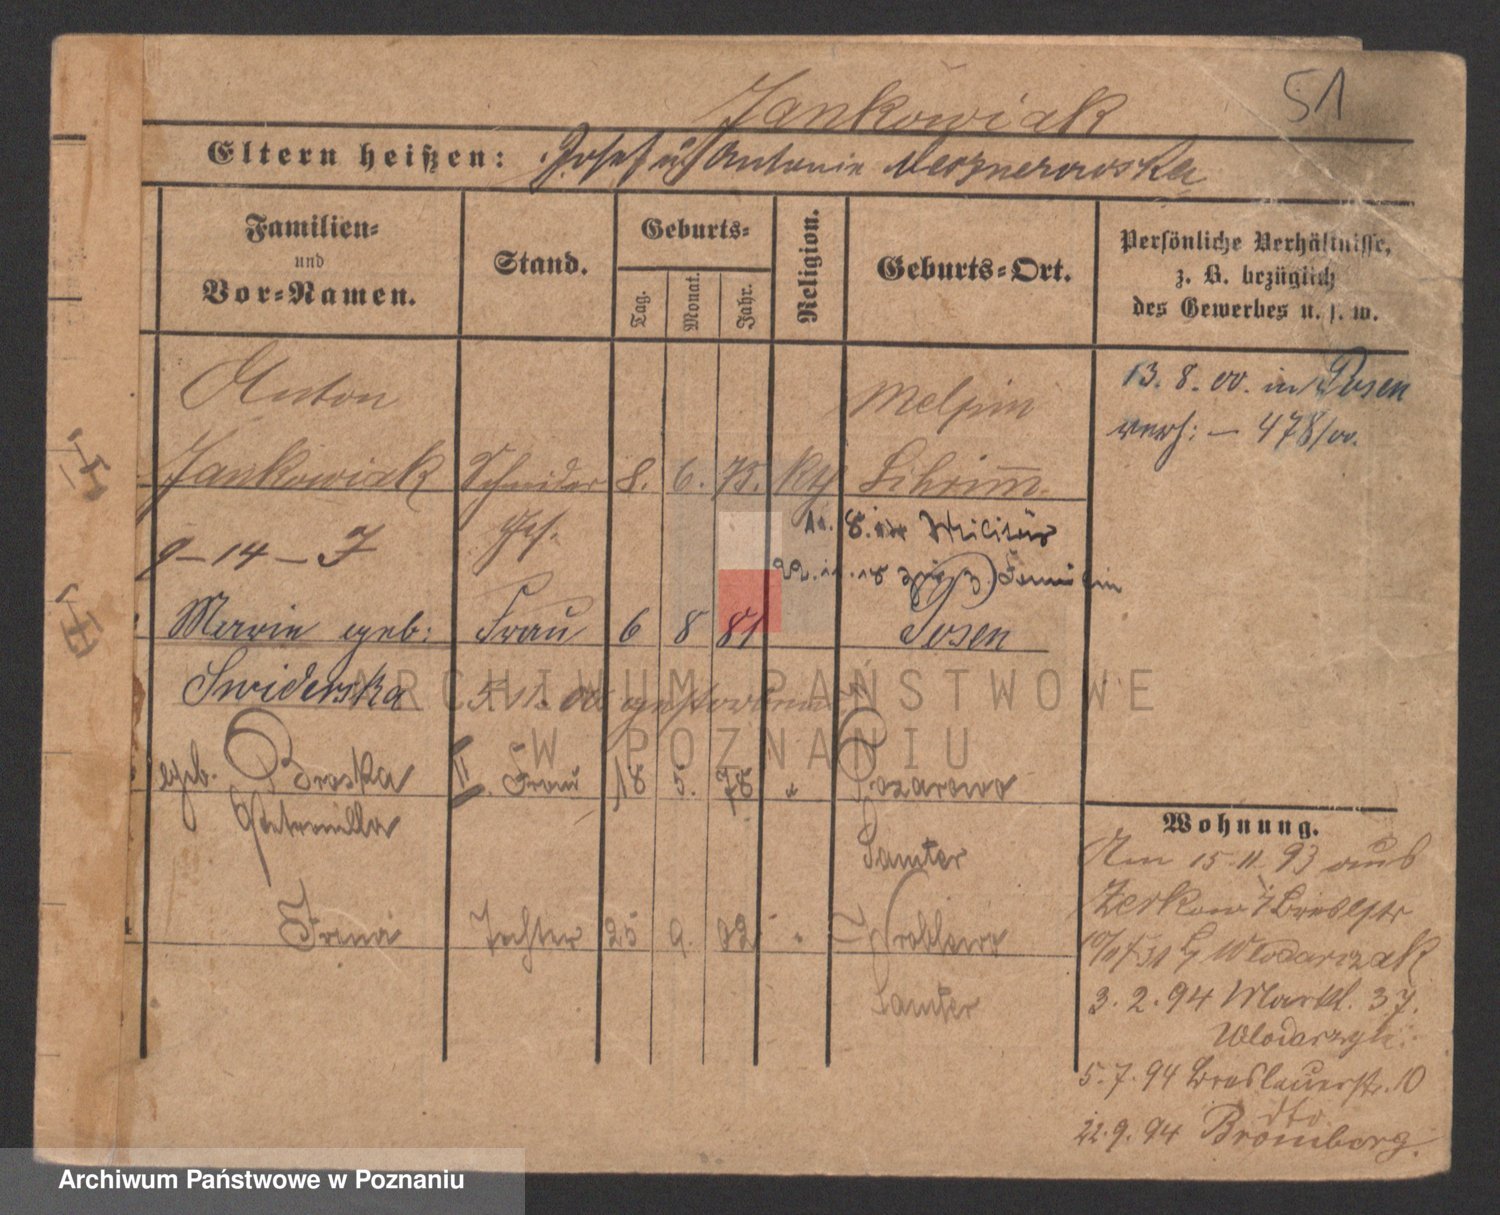 51
Jankowiak
Eltern heißen: Josef u Antonie
Familien-
und
Vor-Namen.
Stand.
Geburts-
Tag.
Monat.
Jahr.
Religion.
Geburts-Ort.
Persönliche Verhältnisse,
z. B. bezüglich
des Gewerbes u. s. w.
Anton
Melpin
13. 8. 00. in Posen
verh: — 478/00.
Jankowiak Schneider 8. 6. 75. kth Schrimm.
Ges.
11. 8. Militär
9 - 14 - J
22. 11. 18 Familie
Marie geb: Frau 6 8 81 Posen
Swiderska 5. 11. 00 gestorben
geb. Broska II. Frau 18 5. 78 " Pozarowo
Petronilla
Samter
Irena Tochter 25 9. 02 " Wroblewo
Samter
Wohnung.
Am 15. 11. 93 aus
Zerkow Breslstr
Wlodarczak
3. 2. 94 Markt. 37.
5. 7. 94 Breslauerstr. 10
dto
22. 9. 94 Bromberg.
ARCHIWUM PAŃSTWOWE
W POZNANIU
Archiwum Państwowe w Poznaniu